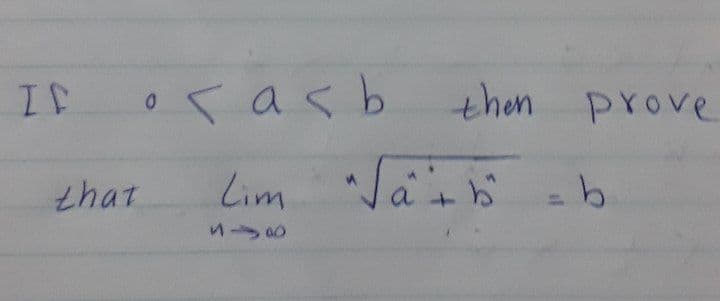 If 0 < a < b then prove
that Lim ⁿ√(aⁿ + bⁿ) = b
n→∞